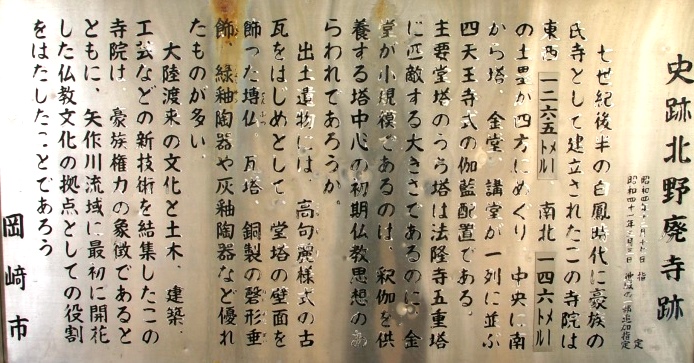 史跡北野廃寺跡
七世紀後半の白鳳時代に豪族の
氏寺として建立されたこの寺院は
東西一二六五トメール 南北一四六トメール
の土塁が四方にめぐり 中央に南
から塔 金堂 講堂が一列に並ぶ
四天王寺式の伽藍配置である。
主要堂塔のうち塔は法隆寺五重塔
に匹敵する大きさであるのに 金
堂が小規模であるのは 釈迦を供
養する塔中心の初期仏教思想の
らわれてあろうか。
出土遺物には、高句麗様式の古
瓦をはじめとして 堂塔の壁面を
飾った塼仏 瓦塔 銅製の磬形垂
飾、緑釉陶器や灰釉陶器など優れ
たものが多い。
大陸渡来の文化と土木、建築、
工芸などの新技術を結集したこの
寺院は、豪族権力の象徴であると
ともに、矢作川流域に最初に開花
した仏教文化の拠点としての役割
をはたしたことであろう
岡崎市